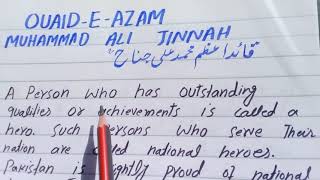 QUAID-E-AZAM
MUHAMMAD ALI JINNAH
قائداعظم محمد علی جناح
A Person who has outstanding
qualities or achievements is called a
hero. Such persons who serve Their
nation are called national heroes.
Pakistan is rightly proud of national